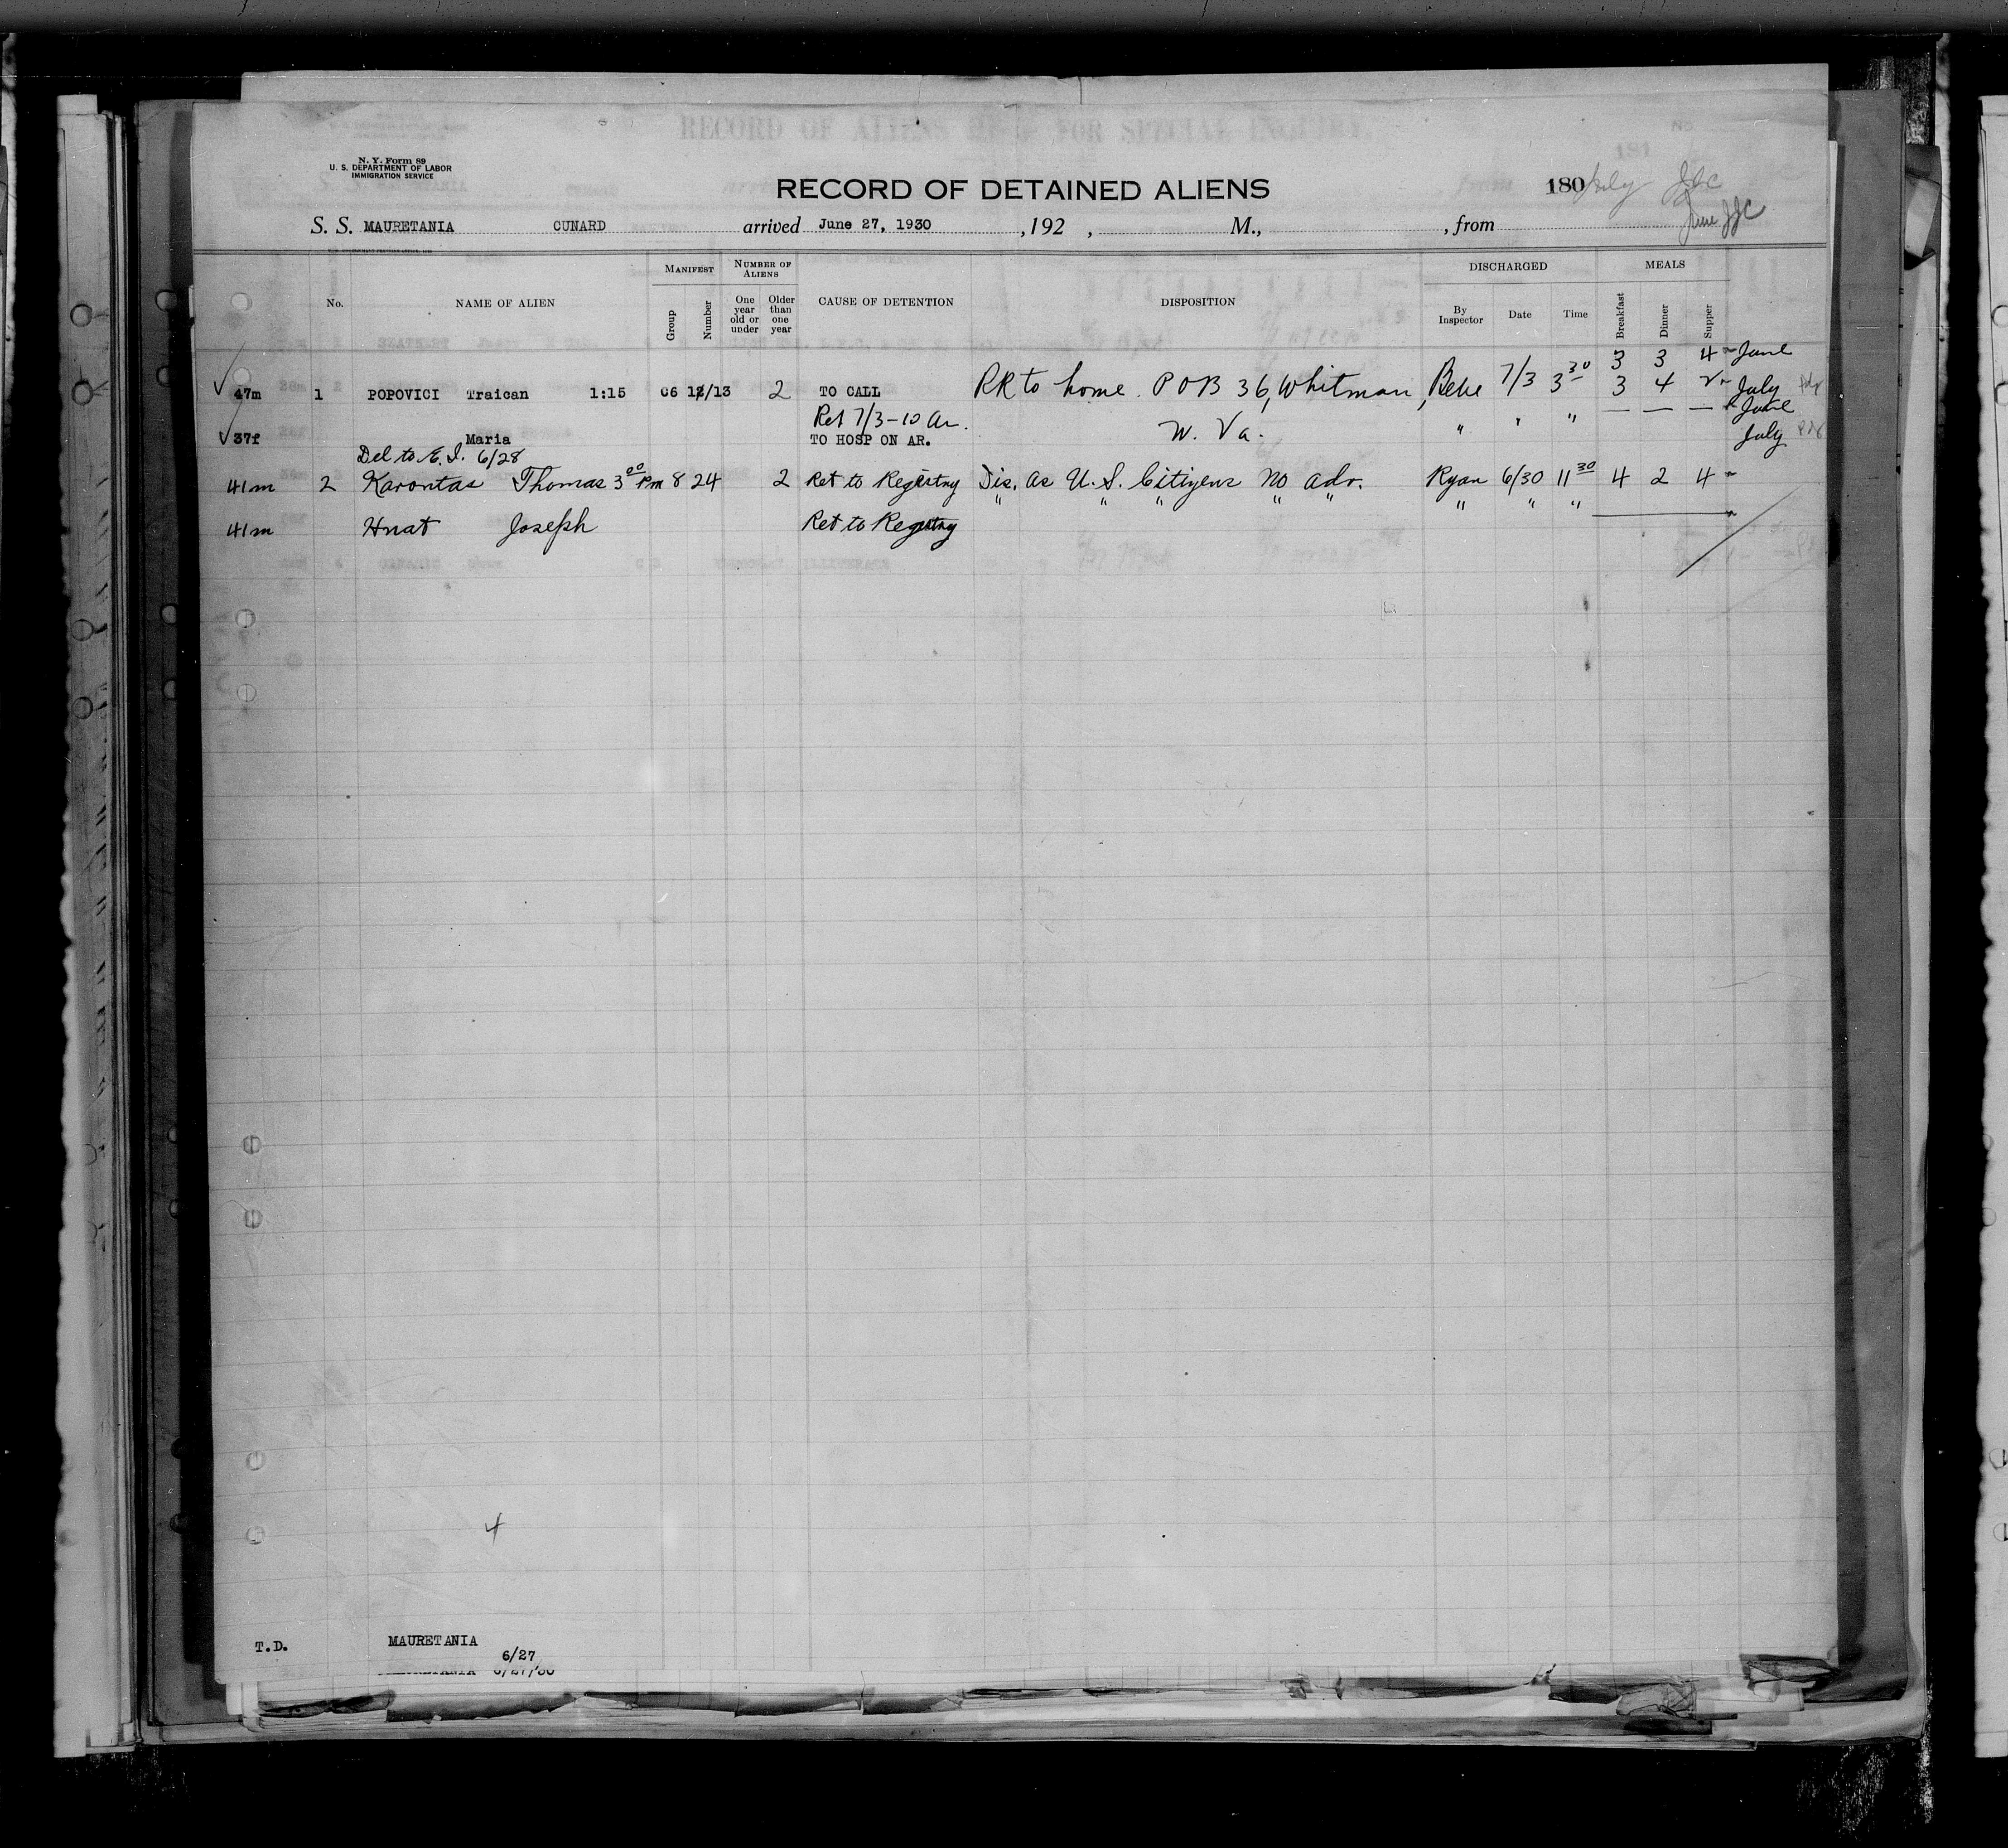 N. Y. Form 89
U. S. DEPARTMENT OF LABOR
IMMIGRATION SERVICE
RECORD OF ALIENS HELD FOR SPECIAL INQUIRY
RECORD OF DETAINED ALIENS
180 July JJC
June JJC
S. S. MAURETANIA CUNARD arrived June 27, 1930 , 192 , M., , from
No. NAME OF ALIEN MANIFEST Group Number NUMBER OF ALIENS One year old or under Older than one year CAUSE OF DETENTION DISPOSITION DISCHARGED By Inspector Date Time MEALS Breakfast Dinner Supper
3 3 4 June
47m 1 POPOVICI Traican 1:15 C6 12/13 2 TO CALL RR to home. POB 36, Whitman, 7/3 3 30 3 4 July
Ret 7/3-10 Ar. W. Va. " " " — — — June
37f Maria TO HOSP ON AR. July
Del to E. I. 6/28
41m 2 Karontas Thomas 3 00 Pm 8 24 2 Ret to Registry Dis. as U. S. Citizens No adv. Ryan 6/30 11 30 4 2 4
41m Hnat Joseph Ret to Registry " " " " " " " "
4
T.D. MAURETANIA
6/27